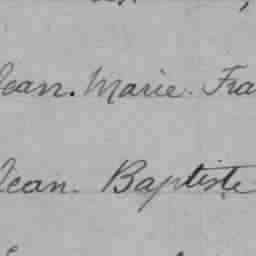 Jean. Marie. Fra
Jean. Baptiste